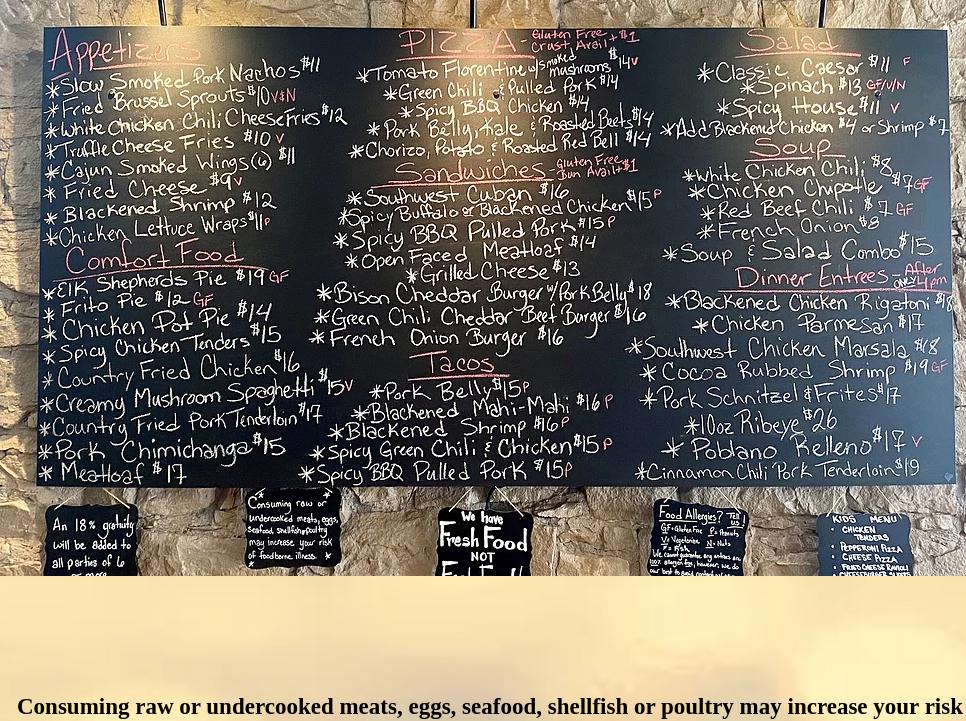 Appetizers
*Slow Smoked Pork Nachos $11
*Fried Brussel Sprouts $10 V&N
*White Chicken Chili Cheese Fries $12
*Truffle Cheese Fries $10 V
*Cajun Smoked Wings (6) $11
*Fried Cheese $9 V
*Blackened Shrimp $12
*Chicken Lettuce Wraps $11 P
Comfort Food
*Elk Shepherds Pie $19 GF
*Frito Pie $12 GF
*Chicken Pot Pie $14
*Spicy Chicken Tenders $15
*Country Fried Chicken $16
*Creamy Mushroom Spaghetti $15 V
*Country Fried Pork Tenderloin $17
*Pork Chimichanga $15
*Meatloaf $17
PIZZA - Gluten Free
Crust Avail + $1
*Tomato Florentine w/ smoked
mushrooms $14 V
*Green Chili & Pulled Pork $14
*Spicy BBQ Chicken $14
*Pork Belly, Kale & Roasted Beets $14
*Chorizo, Potato & Roasted Red Bell $14
Sandwiches - Gluten Free
Bun Avail + $1
*Southwest Cuban $16
*Spicy Buffalo or Blackened Chicken $15 P
*Spicy BBQ Pulled Pork $15 P
*Open Faced Meatloaf $14
*Grilled Cheese $13
*Bison Cheddar Burger w/ Pork Belly $18
*Green Chili Cheddar Beef Burger $16
*French Onion Burger $16
Tacos
*Pork Belly $15 P
*Blackened Mahi-Mahi $16 P
*Blackened Shrimp $16 P
*Spicy Green Chili & Chicken $15 P
*Spicy BBQ Pulled Pork $15 P
Salad
*Classic Caesar $11 F
*Spinach $13 GF/V/N
*Spicy House $11 V
*Add Blackened Chicken $4 or Shrimp $7
Soup
*White Chicken Chili $8
*Chicken Chipotle $7 GF
*Red Beef Chili $7 GF
*French Onion $8
*Soup & Salad Combo $15
Dinner Entrees - ONLY After 4pm
*Blackened Chicken Rigatoni $18
*Chicken Parmesan $17
*Southwest Chicken Marsala $18
*Cocoa Rubbed Shrimp $19 GF
*Pork Schnitzel & Frites $17
*10oz Ribeye $26
*Poblano Relleno $17 V
*Cinnamon Chili Pork Tenderloin $19
An 18% gratuity
will be added to
all parties of 6
Consuming raw or
undercooked meats, eggs,
seafood, shellfish or poultry
may increase your risk
of foodborne illness.
We have
Fresh Food
NOT
Food Allergies? Tell us!
GF = Gluten Free P = Peanuts
V = Vegetarian N = Nuts
F = Fish
We cannot guarantee any entrees are
100% allergen free, however, we do
our best to avoid
KIDS MENU
• CHICKEN
TENDERS
• PEPPERONI PIZZA
• CHEESE PIZZA
• FRIED CHEESE RAVIOLI
• CHEESEBURGER
Consuming raw or undercooked meats, eggs, seafood, shellfish or poultry may increase your risk